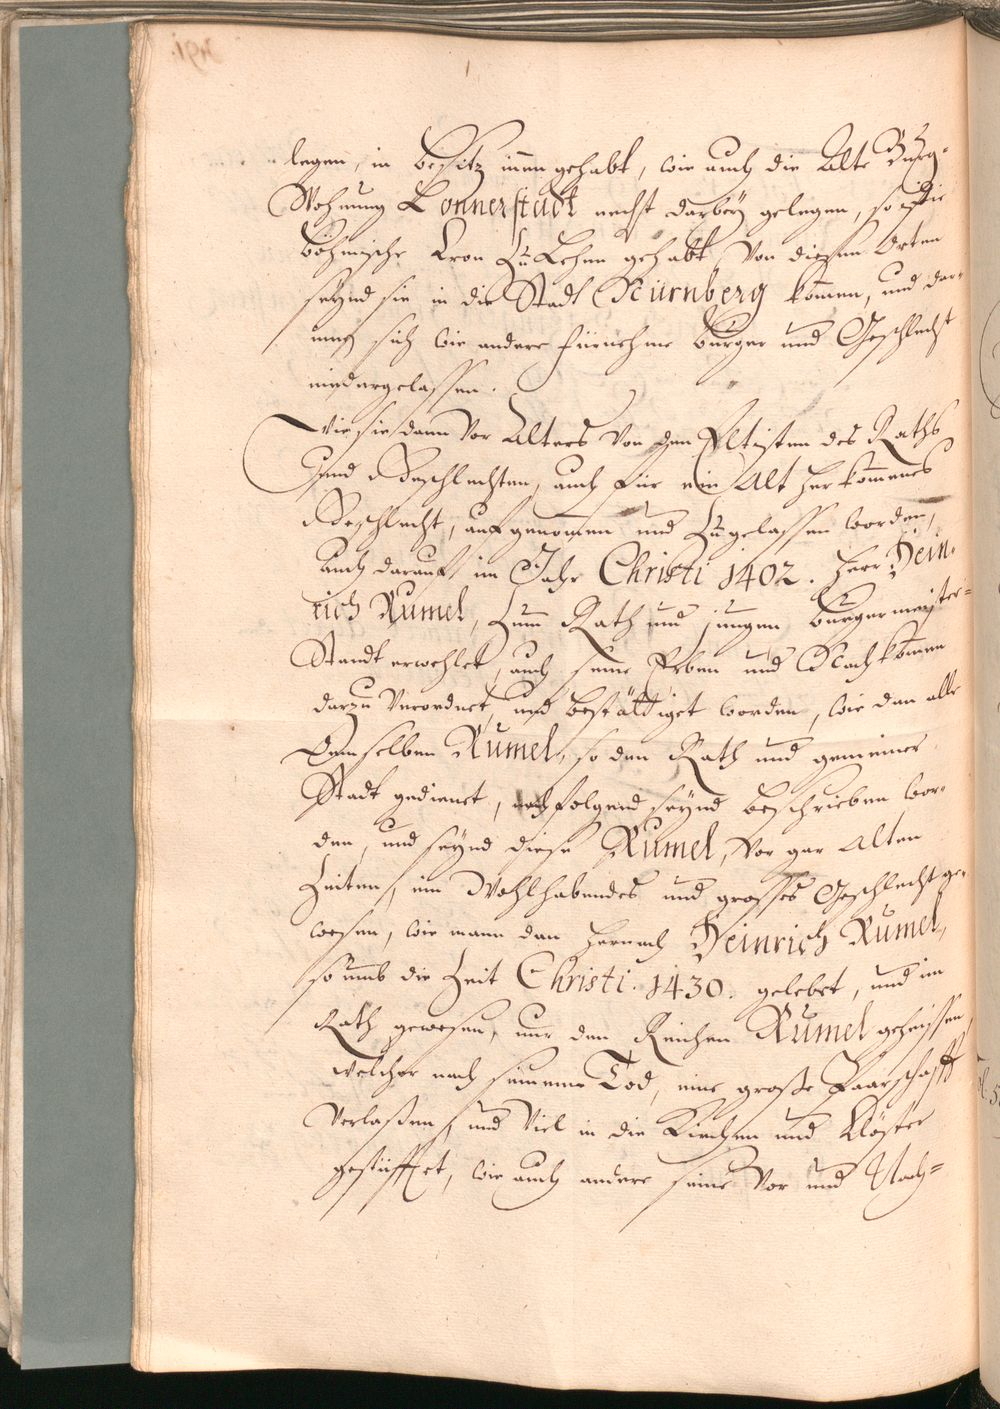 legen, in Besitz innen gehabt, wie auch die Alte Burg-
Wohnung Lonnerstadt nechst darbey gelegen, so die
böhmische Cron Zu Lehen gehabt, Von diesen Orten
seynd sie in die Stadt Nürnberg kom̅en, und dar-
innen sich wie andere fürnehme burger und Geschlecht
niedergelassen.
Wie sie dann Vor Alters Von den Eltisten des Raths
und Geschlechten, auch für ein Alt herkom̅enes
Geschlecht, aufgenom̅en und Zugelassen worden,
auch darauff im Jahr Christi 1402. Herr Hein-
rich Rumel, Zum Rath und jungen burgermeister-
Standt erwehlet, auch seine Erben und Nachkom̅en
darzu Verordnet, und bestättiget worden, wie dan alle
Demselben Rumel, so den Rath und gemeiner
Stadt gedienet, nachfolgend seynd beschrieben wor-
den, und seynd diese Rumel, Vor gar Alten
Zeiten, ein Wohlhabendes und grosses Geschlecht ge-
wesen, wie mann dan hernach Heinrich Rumel,
so umb die Zeit Christi. 1430. gelebet, und im
Rath gewesen, nur den Reichen Rumel geheissen,
welcher nach seinem Tod, eine große Paarschafft
Verlaßen, und Viel in die Kirchen und Clöster
gestüfftet, wie auch andere seine Vor und Nach-